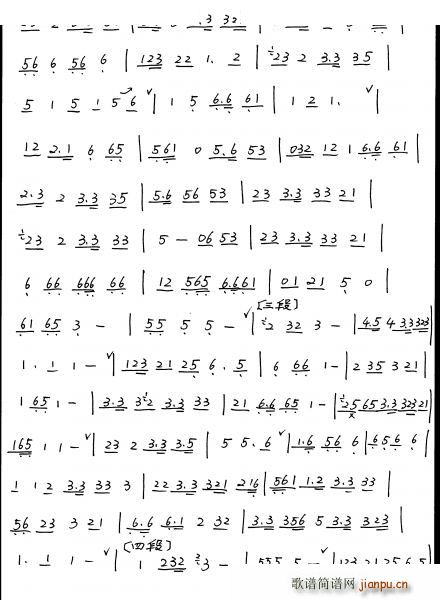 .3 32
56 6 56 6 | 123 22 1. 2 | 23 2 3.3 35 |
5 1 5 1 5 6 | 1 5 6.6 61 | 1 2 1. |
12 2.1 6 65 | 561 0 5.6 53 | 032 12 1 6.6 61 |
2.3 2 3.3 35 | 5.6 56 53 | 23 3.3 33 21 |
23 2 3.3 33 | 5 - 06 53 | 23 3.3 33 21 |
6 66 666 66 | 12 565 6.661 | 01 21 5 0 |
[三段]
61 65 3 - | 55 5 5 - | 2 32 3 - | 4.5 4 3.3323
1. 1 1 - | 123 21 25 6.5 | 6 66 1 - | 2 35 3 21 |
1 65 1 - | 3.3 32 3.3 33 | 21 6.6 65 1 - | 2565 3.3 323 21
165 1 1 - | 23 2 3.3 3.5 | 5 5. 6 | 1.6 56 6 | 656 6
1 12 3.3 33 3 | 22 3.3 321 216 | 561 1.2 3.3 33 |
56 23 3 21 | 6.6 6.1 2 32 | 3.3 356 5 3.3 323 |
[四段]
1. 1 1 - | 1 232 3 - | 555 5 - | 123 21 25 6.5
歌谱简谱网 jianpu.cn